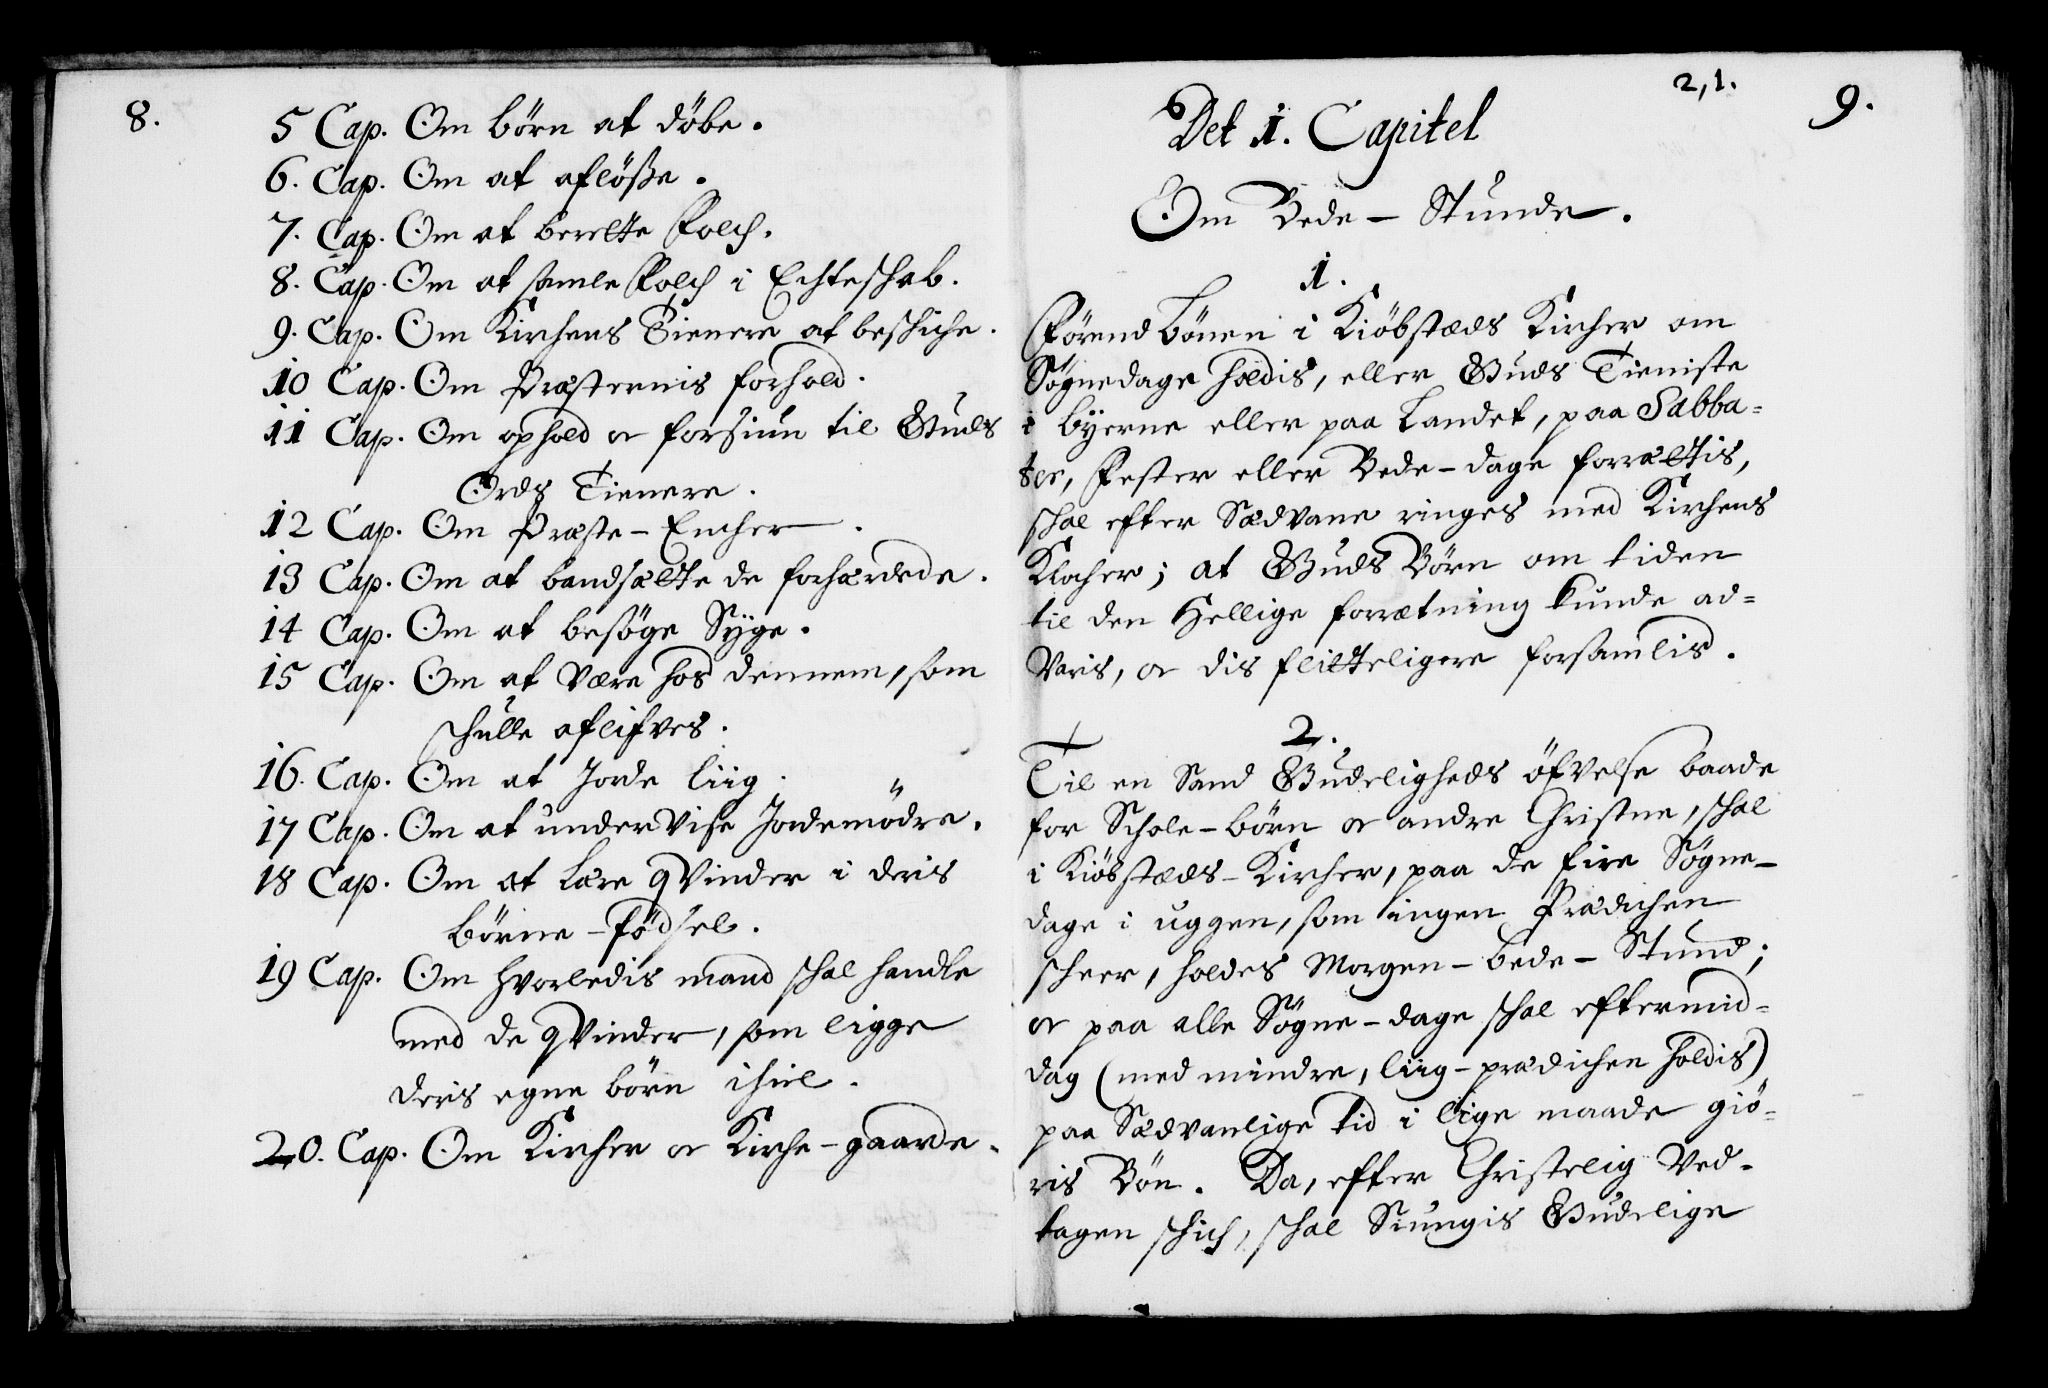 8.
5 Cap. Om börn at döbe.
6. Cap. Om at aflösse.
7. Cap. Om at berette Folch.
8. Cap. Om at samle Folch i Echteschab.
9. Cap. Om Kirchens Tienere at beschiche.
10 Cap. Om Præsternis forhold.
11 Cap. Om ophold oc forsiun til Guds
Ords Tienere.
12 Cap. Om Præste-Encher.
13 Cap. Om at bandsætte de forhærdede.
14 Cap. Om at besöge Syge.
15 Cap. Om at være hos dennem, som
schulle aflifves.
16. Cap. Om at Jorde liig.
17 Cap. Om at undervise Jordemödre.
18 Cap. Om at Lære qvinder i deris
börne-födsel.
19 Cap. Om hvorledis mand schal handle
med de qvinder, som ligge
deris egne börn ihiel.
20. Cap. Om Kircher oc Kirche-gaarde.
2,1.
9.
Det 1. Capitel
Om Bede-Stunde.
1.
Förend bönen i Kiöbstæds Kircher om
Sögnedage holdis, eller Guds Tieniste
i byerne eller paa Landet, paa Sabba=
ter, Fester eller Bede-dage forrættis,
schal efter Sædvane ringes med Kirchens
Klocher; at Guds Börn om tiden
til den Hellige forrætning kunde ad=
varis, oc dis flitteligere forsamlis.
2.
Til en sand Gudeligheds öfvelse baade
for Schole-börn oc andre Christne, schal
i Kiöbstæds-Kircher, paa de fire Sögne-
dage i uggen, som ingen Prædichen
scheer, holdes Morgen-bede-Stund;
oc paa alle Sögne-dage schal eftermid=
dag (med mindre, liig-prædichen holdis)
paa Sædvanlige tid i lige maade giö=
ris Bön. Da, efter Christelig Ved-
tagen schich, schal Siungis Gudelige